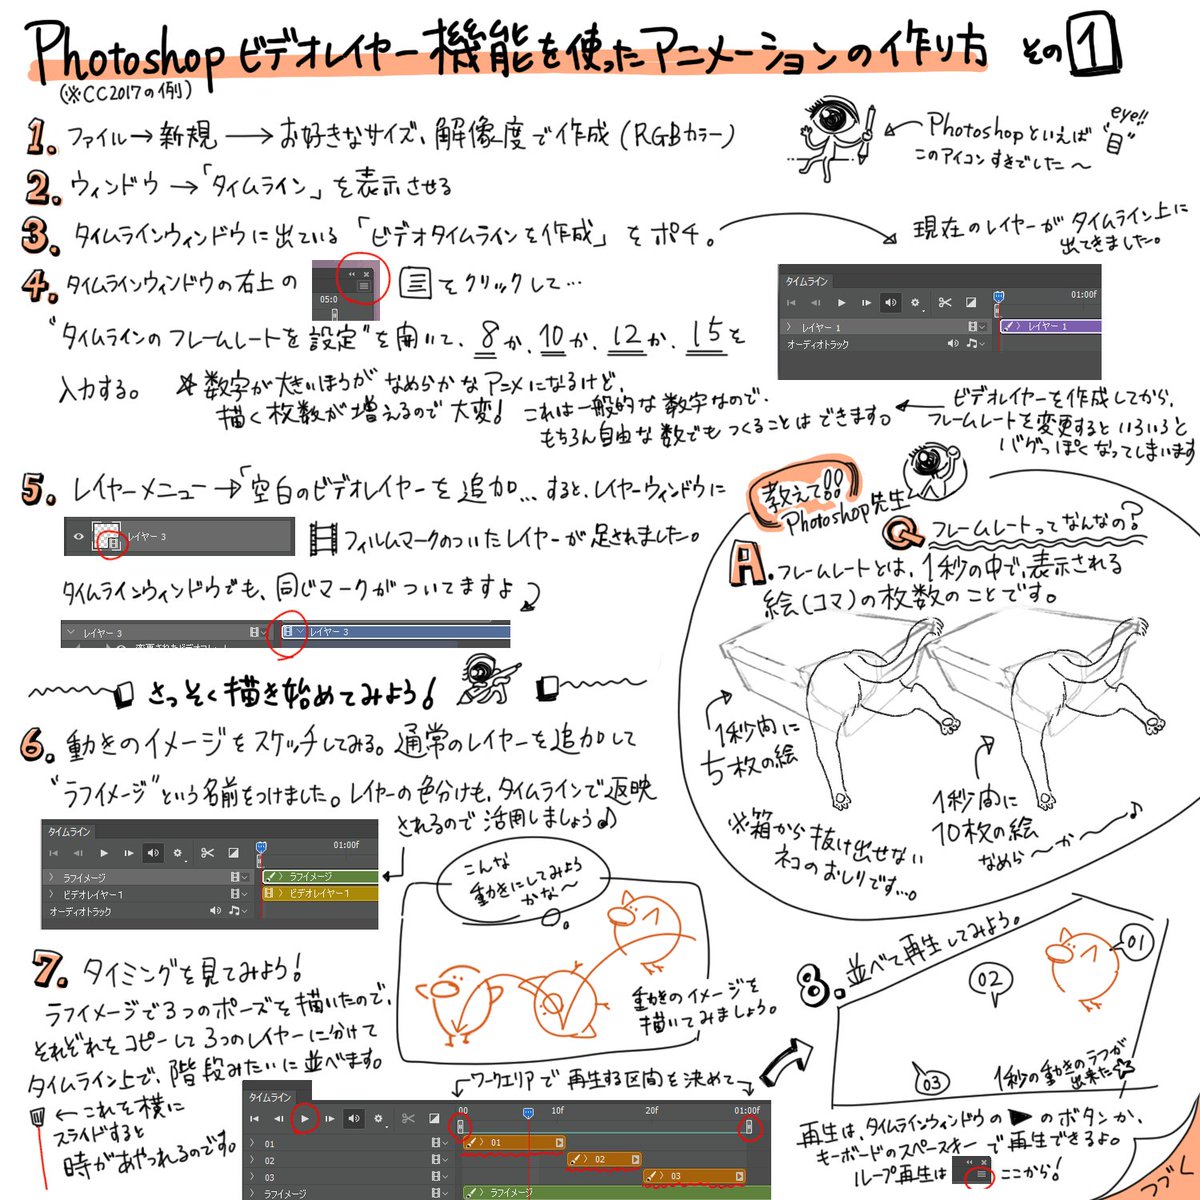 Photoshop ビデオレイヤー機能を使ったアニメーションの作り方 その1
(※CC2017の例)
1. ファイル→新規 →お好きなサイズ、解像度で作成(RGBカラー)
Photoshopといえば
このアイコンすきでした〜
eye!!
"目"
2. ウィンドウ→「タイムライン」を表示させる
3. タイムラインウィンドウに出ている「ビデオタイムラインを作成」をポチ。
現在のレイヤーがタイムライン上に
出てきました。
タイムライン
01:00f
レイヤー 1
レイヤー 1
オーディオトラック
4. タイムラインウィンドウの右上の
05:0
をクリックして…
"タイムラインのフレームレートを設定"を開いて、8か、10か、12か、15を
入力する。
※数字が大きいほうがなめらかなアニメになるけど、
描く枚数が増えるので大変! これは一般的な数字なので、
もちろん自由な数でもつくることはできます。
ビデオレイヤーを作成してから、
フレームレートを変更するといろいろと
バグっぽくなってしまいます
5. レイヤーメニュー→「空白のビデオレイヤーを追加… すると、レイヤーウィンドウに
レイヤー 3
フィルムマークのついたレイヤーが足されました。
タイムラインウィンドウでも、同じマークがついてますよ
レイヤー 3
レイヤー 3
教えて!!
Photoshop先生
Q フレームレートってなんなの?
A. フレームレートとは、1秒の中で、表示される
絵(コマ)の枚数のことです。
1秒間に
5枚の絵
1秒間に
10枚の絵
なめら〜か〜〜♪
※箱から抜け出せない
ネコのおしりです…。
さっそく描き始めてみよう!
6. 動きのイメージをスケッチしてみる。通常のレイヤーを追加して
"ラフイメージ"という名前をつけました。レイヤーの色分けも、タイムラインで反映
されるので活用しましょう♪
タイムライン
01:00f
ラフイメージ
ラフイメージ
ビデオレイヤー1
ビデオレイヤー1
オーディオトラック
こんな
動きにしてみよう
かな〜
動きのイメージを
描いてみましょう。
7. タイミングを見てみよう!
ラフイメージで3つのポーズを描いたので、
それぞれをコピーして3つのレイヤーに分けて
タイムライン上で、階段みたいに並べます。
←これを横に
スライドすると
時があやつれるのです。
ワークエリアで再生する区間を決めて
タイムライン
00
10f
20f
01:00f
01
01
02
02
03
03
ラフイメージ
ラフイメージ
8. 並べて再生してみよう。
01
02
03
1秒の動きのラフが
出来た☆
再生は、タイムラインウィンドウの▶のボタンか、
キーボードのスペースキーで再生できるよ。
ループ再生は
ここから!
つづく